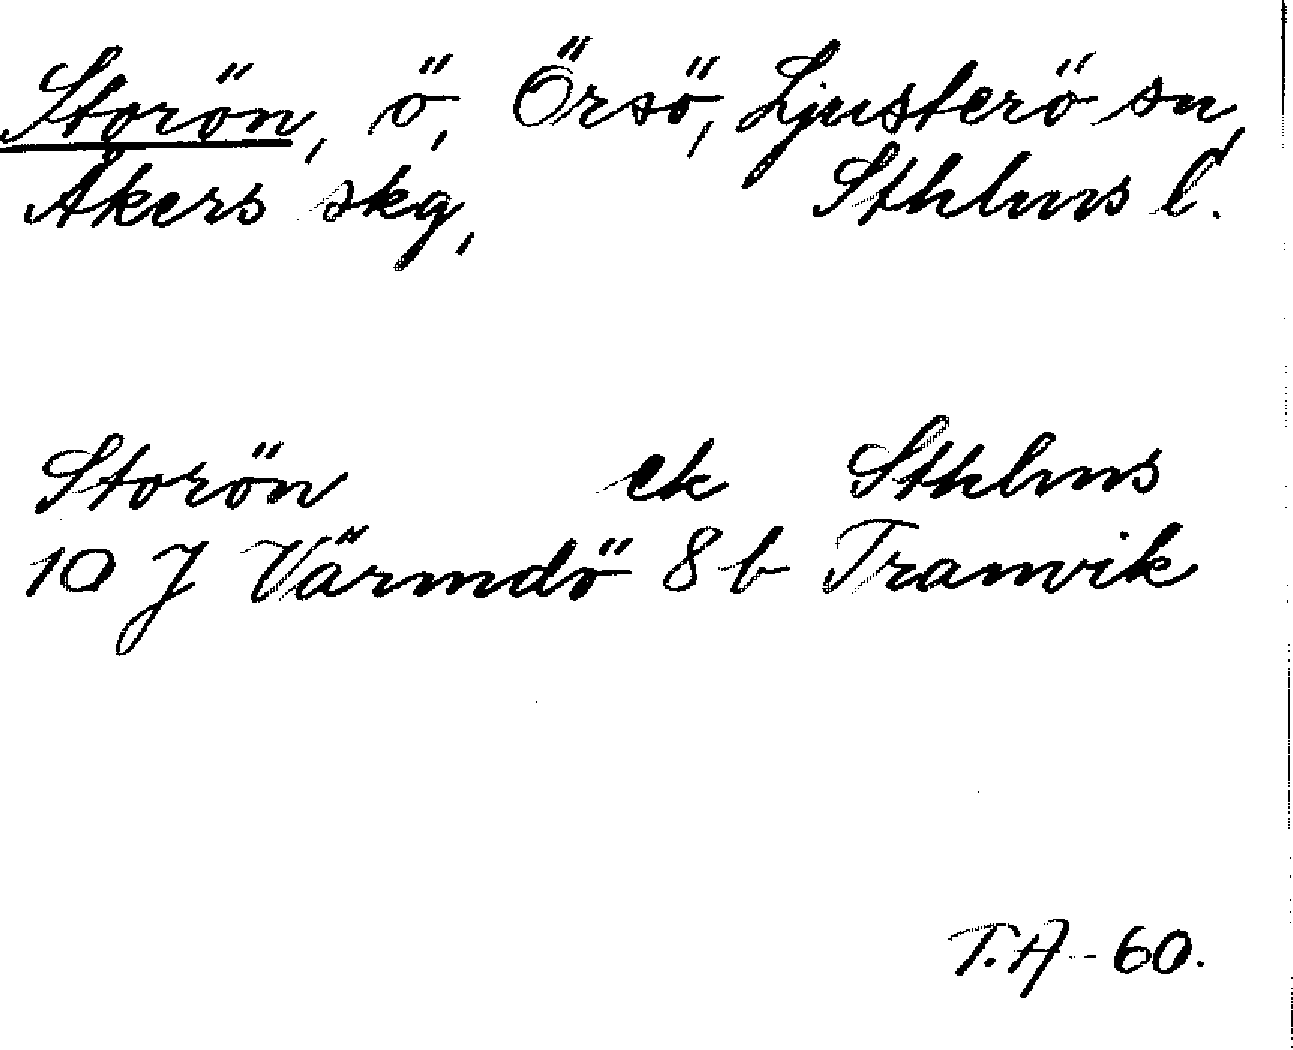 Storön, ö, Örsö, Ljusterö sn,
Åkers skg, Sthlms l.
Storön ek Sthlms
10 J Värmdö 8 b Tranvik
T.A-60.